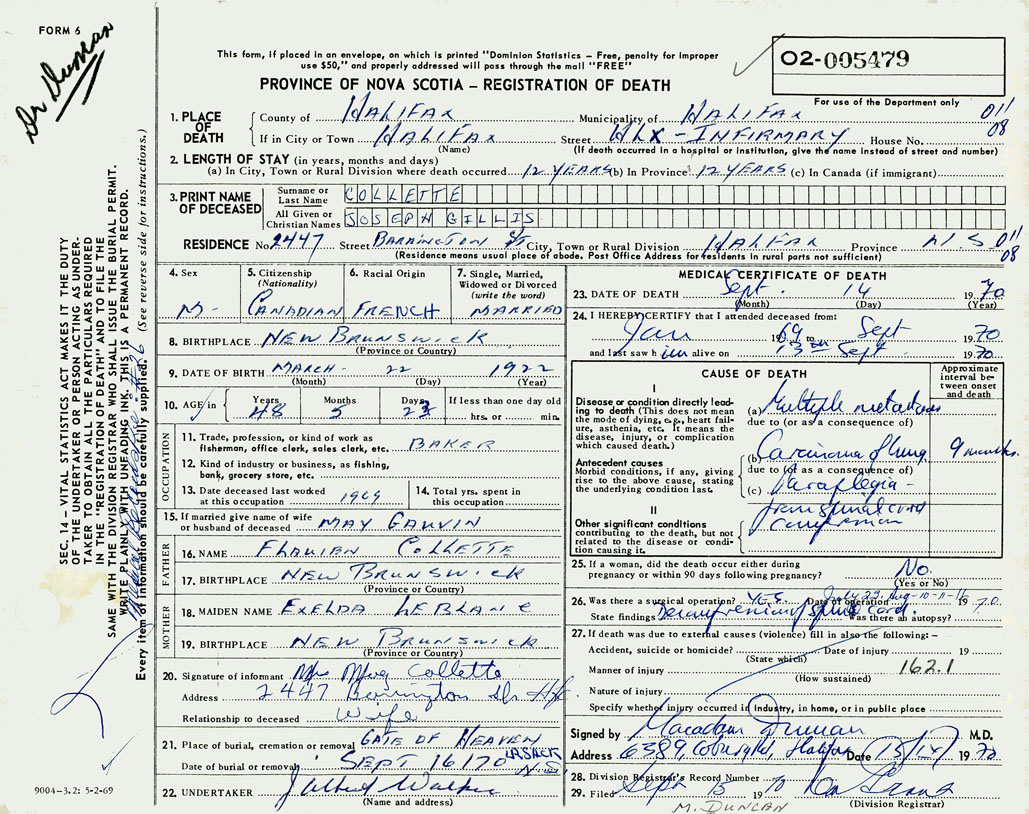 FORM 6
Dr Duncan
This form, if placed in an envelope, on which is printed "Dominion Statistics – Free, penalty for improper
use $50," and properly addressed will pass through the mail "FREE"
PROVINCE OF NOVA SCOTIA – REGISTRATION OF DEATH
02-005479
For use of the Department only
1. PLACE OF DEATH
County of HALIFAX Municipality of HALIFAX 011
If in City or Town HALIFAX Street HLX - INFIRMARY House No. 08
(Name) (If death occurred in a hospital or institution, give the name instead of street and number)
2. LENGTH OF STAY (in years, months and days)
(a) In City, Town or Rural Division where death occurred 12 YEARS (b) In Province 12 YEARS (c) In Canada (if immigrant)
3. PRINT NAME OF DECEASED
Surname or Last Name COLLETTE
All Given or Christian Names JOSEPH GILLIS
RESIDENCE No. 2447 Street BARRINGTON ST City, Town or Rural Division HALIFAX Province N.S 011
(Residence means usual place of abode. Post Office Address for residents in rural parts not sufficient) 08
4. Sex M-
5. Citizenship (Nationality) CANADIAN
6. Racial Origin FRENCH
7. Single, Married, Widowed or Divorced (write the word) MARRIED
8. BIRTHPLACE NEW BRUNSWICK
(Province or Country)
9. DATE OF BIRTH MARCH 22 1922
(Month) (Day) (Year)
10. AGE in Years 48 Months 5 Days 23 If less than one day old hrs. or min.
OCCUPATION
11. Trade, profession, or kind of work as fisherman, office clerk, sales clerk, etc. BAKER
12. Kind of industry or business, as fishing, bank, grocery store, etc.
13. Date deceased last worked at this occupation 1969
14. Total yrs. spent in this occupation
15. If married give name of wife or husband of deceased MAY GAUVIN
FATHER
16. NAME FLAVIAN COLLETTE
17. BIRTHPLACE NEW BRUNSWICK
(Province or Country)
MOTHER
18. MAIDEN NAME EXELDA LEBLANC
19. BIRTHPLACE NEW BRUNSWICK
(Province or Country)
20. Signature of informant Mrs May Collette
Address 2447 Barrington St Hfx.
Relationship to deceased Wife
21. Place of burial, cremation or removal GATE OF HEAVEN
Date of burial or removal SEPT 16/70 N.S
22. UNDERTAKER
(Name and address)
MEDICAL CERTIFICATE OF DEATH
23. DATE OF DEATH Sept. 14 1970
(Month) (Day) (Year)
24. I HEREBY CERTIFY that I attended deceased from:
Jan 1969 to Sept 1970
and last saw him alive on 13th Sept 1970
CAUSE OF DEATH
Approximate interval between onset and death
I
Disease or condition directly leading to death (This does not mean the mode of dying, e.g., heart failure, asthenia, etc. It means the disease, injury, or complication which caused death.)
(a) Multiple metastases
due to (or as a consequence of)
Antecedent causes
Morbid conditions, if any, giving rise to the above cause, stating the underlying condition last.
(b) Carcinoma of lung 9 months.
due to (or as a consequence of)
(c) Paraplegia -
from spinal cord
compression
II
Other significant conditions contributing to the death, but not related to the disease or condition causing it.
25. If a woman, did the death occur either during pregnancy or within 90 days following pregnancy? No.
(Yes or No)
26. Was there a surgical operation? YES Date of operation July 23, Aug-10-11-16 1970
State findings Decompression of spinal cord. Was there an autopsy?
27. If death was due to external causes (violence) fill in also the following:–
Accident, suicide or homicide? Date of injury 19
(State which)
Manner of injury 162.1
(How sustained)
Nature of injury
Specify whether injury occurred in industry, in home, or in public place
Signed by Macadam Duncan M.D.
Address 6389 Coburg Rd, Halifax Date 15/IX/ 1970
28. Division Registrar's Record Number
29. Filed Sept 15 1970
(Division Registrar)
M. DUNCAN
9004-3.2: 5-2-69
SEC. 14 – VITAL STATISTICS ACT MAKES IT THE DUTY
OF THE UNDERTAKER OR PERSON ACTING AS UNDER-
TAKER TO OBTAIN ALL THE PARTICULARS REQUIRED
IN THE "REGISTRATION OF DEATH" AND TO FILE THE
SAME WITH THE DIVISION REGISTRAR WHO SHALL ISSUE THE BURIAL PERMIT.
WRITE PLAINLY WITH UNFADING INK. THIS IS A PERMANENT RECORD.
Every item of information should be carefully supplied. (See reverse side for instructions.)